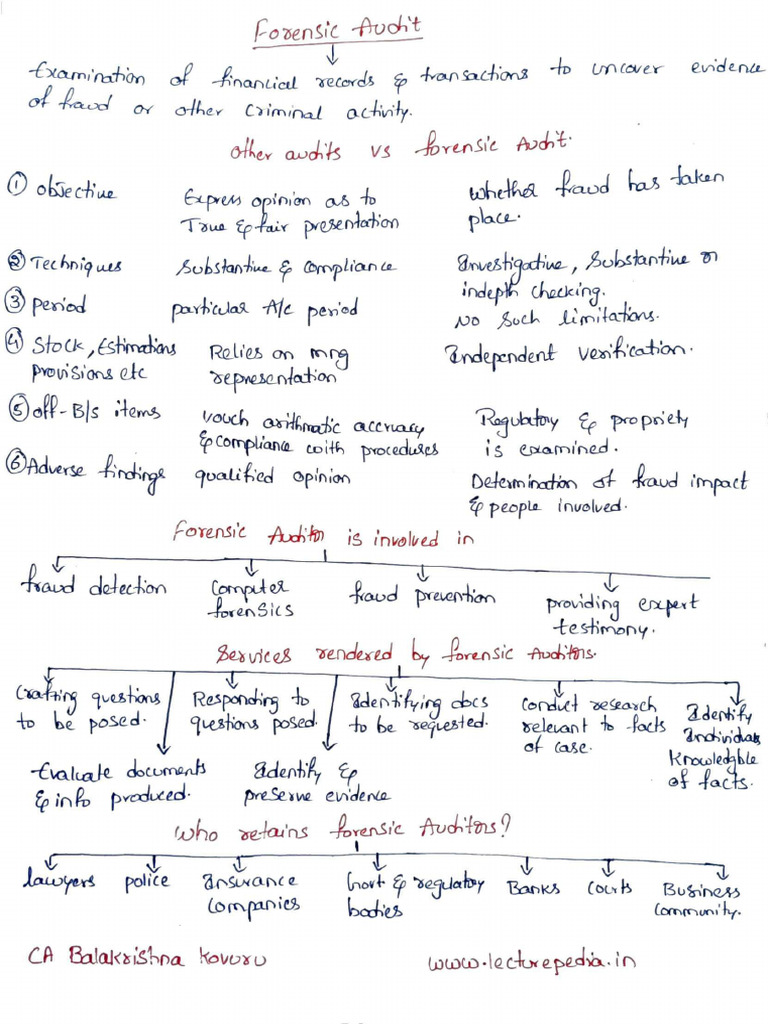 Forensic Audit
Examination of financial records & transactions to uncover evidence
of fraud or other criminal activity.
Other audits vs Forensic Audit.
① Objective Express opinion as to Whether fraud has taken
True & fair presentation place.
② Techniques Substantive & compliance Investigative, Substantive or
indepth checking.
③ Period particular A/c period No such limitations.
④ Stock, Estimations Relies on mng Independent verification.
provisions etc representation
⑤ Off-B/s items vouch arithmatic accuracy Regulatory & propriety
& compliance with procedures is examined.
⑥ Adverse findings qualified opinion Determination of fraud impact
& people involved.
Forensic Auditor is involved in
fraud detection Computer fraud prevention providing expert
forensics testimony.
Services rendered by forensic Auditors.
Crafting questions Responding to Identifying docs Conduct research Identify
to be posed. questions posed. to be requested. relevant to facts Individuals
of case. Knowledgble
of facts.
Evaluate documents Identify &
& info produced. preserve evidence
Who retains forensic Auditors?
lawyers police Insurance Govt & regulatory Banks Courts Business
Companies bodies Community.
CA Balakrishna Kovuru www.lecturepedia.in